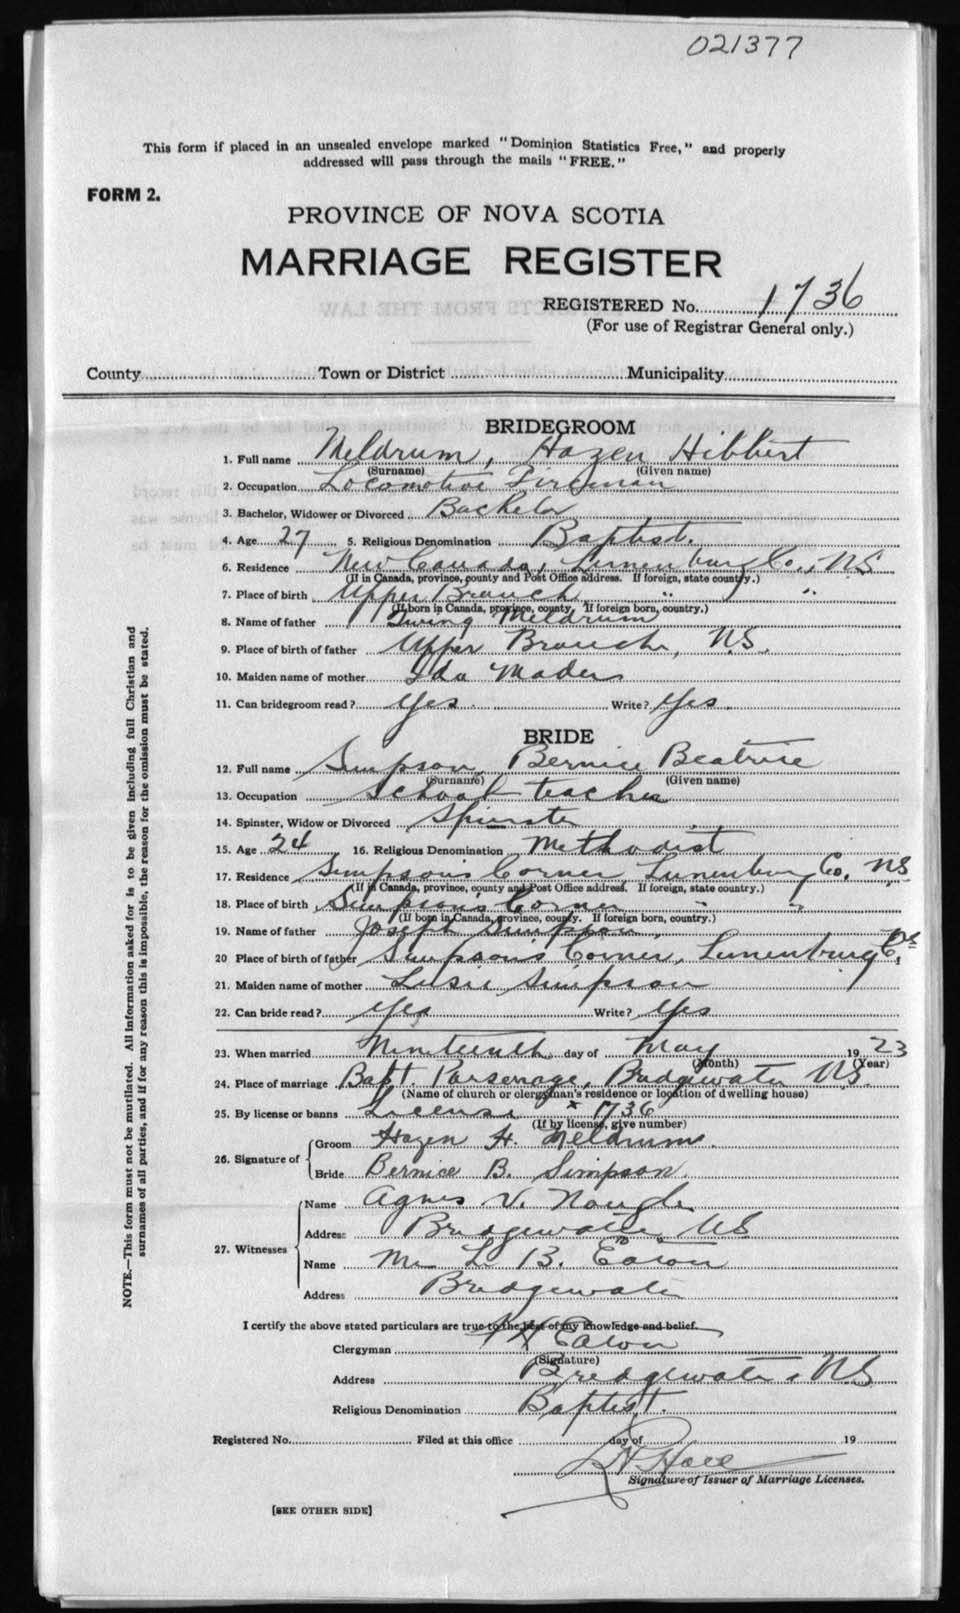 021377
This form if placed in an unsealed envelope marked "Dominion Statistics Free," and properly
addressed will pass through the mails "FREE."
FORM 2.
PROVINCE OF NOVA SCOTIA
MARRIAGE REGISTER
REGISTERED No. 1736
(For use of Registrar General only.)
County Town or District Municipality
BRIDEGROOM
1. Full name Meldrum, Hazen Hibbert
(Surname) (Given name)
2. Occupation Locomotive Fireman
3. Bachelor, Widower or Divorced Bachelor
4. Age 27 5. Religious Denomination Baptist.
6. Residence New Canada, Lunenburg Co., N.S
(If in Canada, province, county and Post Office address. If foreign, state country.)
7. Place of birth Upper Branch " "
(If born in Canada, province, county. If foreign born, country.)
8. Name of father Meldrum
9. Place of birth of father Upper Branch, N.S.
10. Maiden name of mother Ida Mader
11. Can bridegroom read? Yes. Write? Yes.
BRIDE
12. Full name Simpson, Bernice Beatrice
(Surname) (Given name)
13. Occupation School teacher
14. Spinster, Widow or Divorced Spinster
15. Age 24 16. Religious Denomination Methodist
17. Residence Simpson's Corner Lunenburg Co. N.S
(If in Canada, province, county and Post Office address. If foreign, state country.)
18. Place of birth Simpson's Corner " "
(If born in Canada, province, county. If foreign born, country.)
19. Name of father Joseph Simpson
20 Place of birth of father Simpson's Corner, Lunenburg Co, NS
21. Maiden name of mother Susie Simpson
22. Can bride read? Yes Write? Yes
23. When married Nineteenth day of May 1923
(Month) (Year)
24. Place of marriage Bapt. Parsonage, Bridgewater N.S.
(Name of church or clergyman's residence or location of dwelling house)
25. By license or banns License x 1736
(If by license, give number)
26. Signature of Groom Hazen H. Meldrum.
Bride Bernice B. Simpson.
27. Witnesses Name Agnes V. Naugle
Address Bridgewater NS
Name L. B. Eaton
Address Bridgewater
I certify the above stated particulars are true to the best of my knowledge and belief.
Clergyman Eaton
(Signature)
Address Bridgewater, N.S
Religious Denomination Baptist.
Registered No. Filed at this office day of 19
Signature of Issuer of Marriage Licenses.
[SEE OTHER SIDE]
NOTE.—This form must not be mutilated. All information asked for is to be given including full Christian and
surnames of all parties, and if for any reason this is impossible, the reason for the omission must be stated.